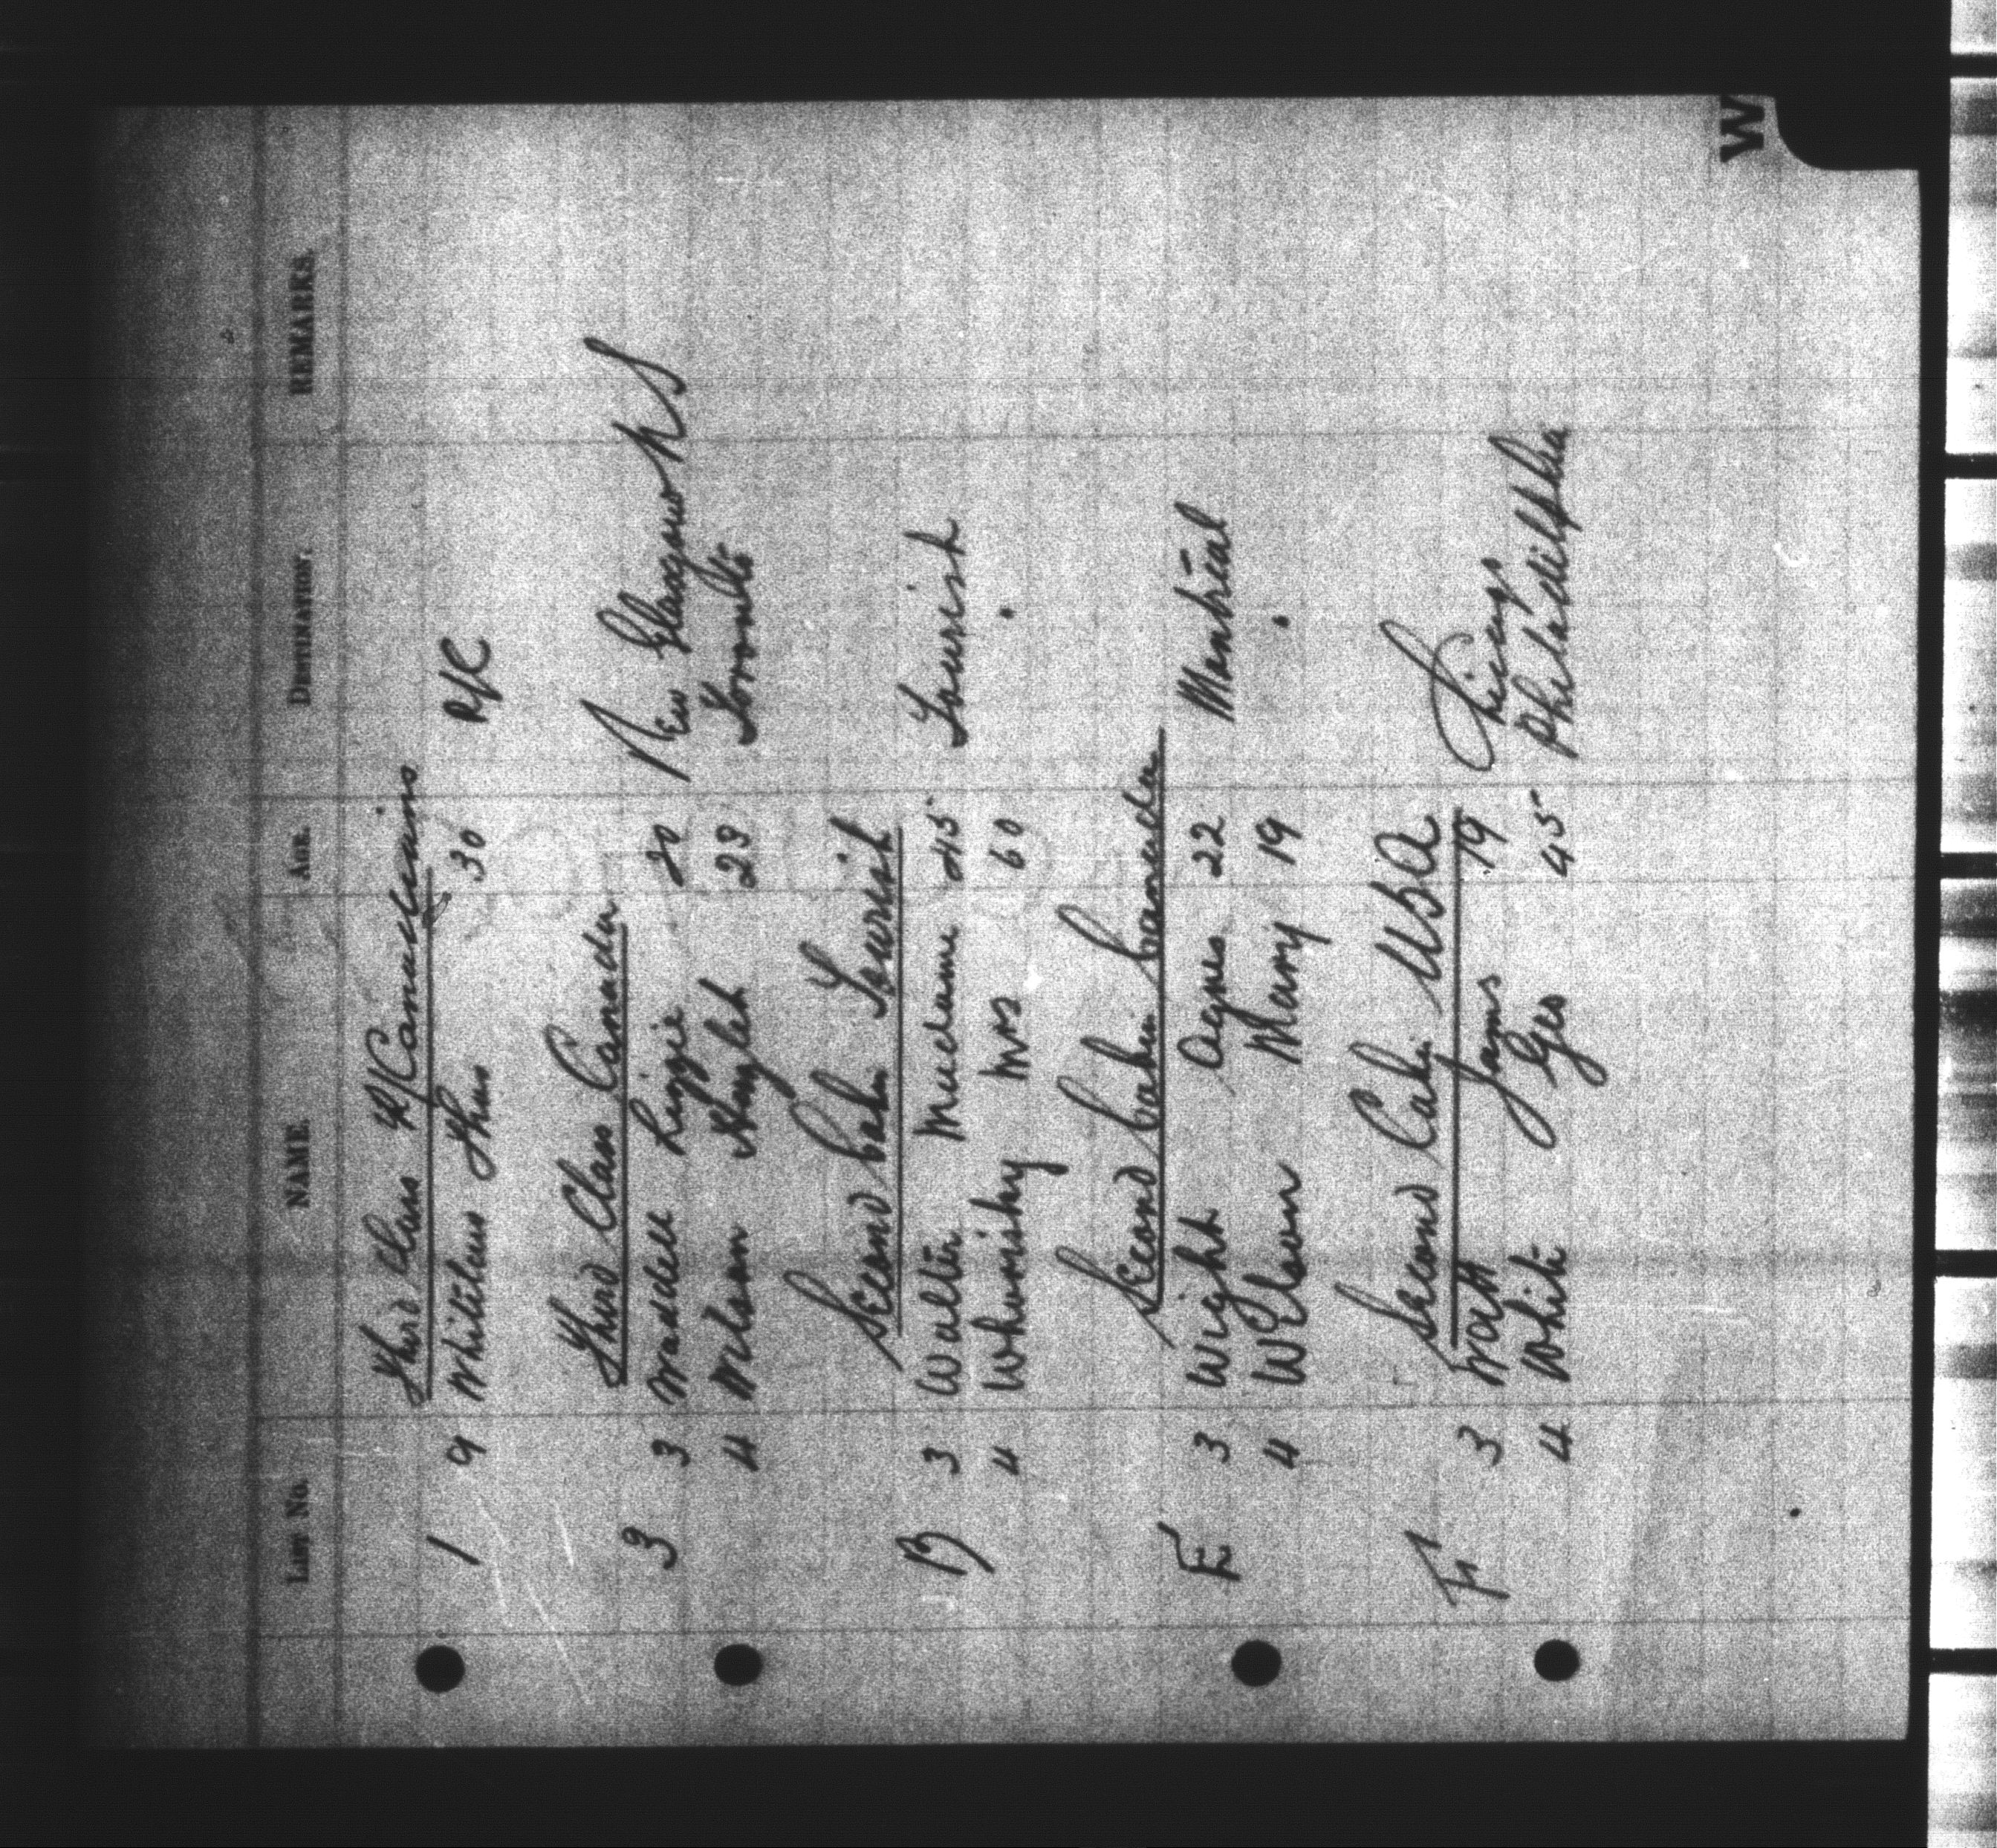 LIST No. NAME. AGE. DESTINATION. REMARKS.
Third Class R/Canadians
1 9 Whitelaw Thos 30 R/C
Third Class Canada
3 3 Waddell Lizzie 20 New Glasgow N S
4 Wilson Hugh 23 Toronto
Second Cabin Tourist
B 3 Walter Madame 45 Tourist
4 Mrs 60 "
Second Cabin Canada
E 3 Wight Agnes 22 Montreal
4 Wilson Mary 19 "
Second Cabin USA
F 3 Watt James 19
4 White Geo 45 Philadelphia
W